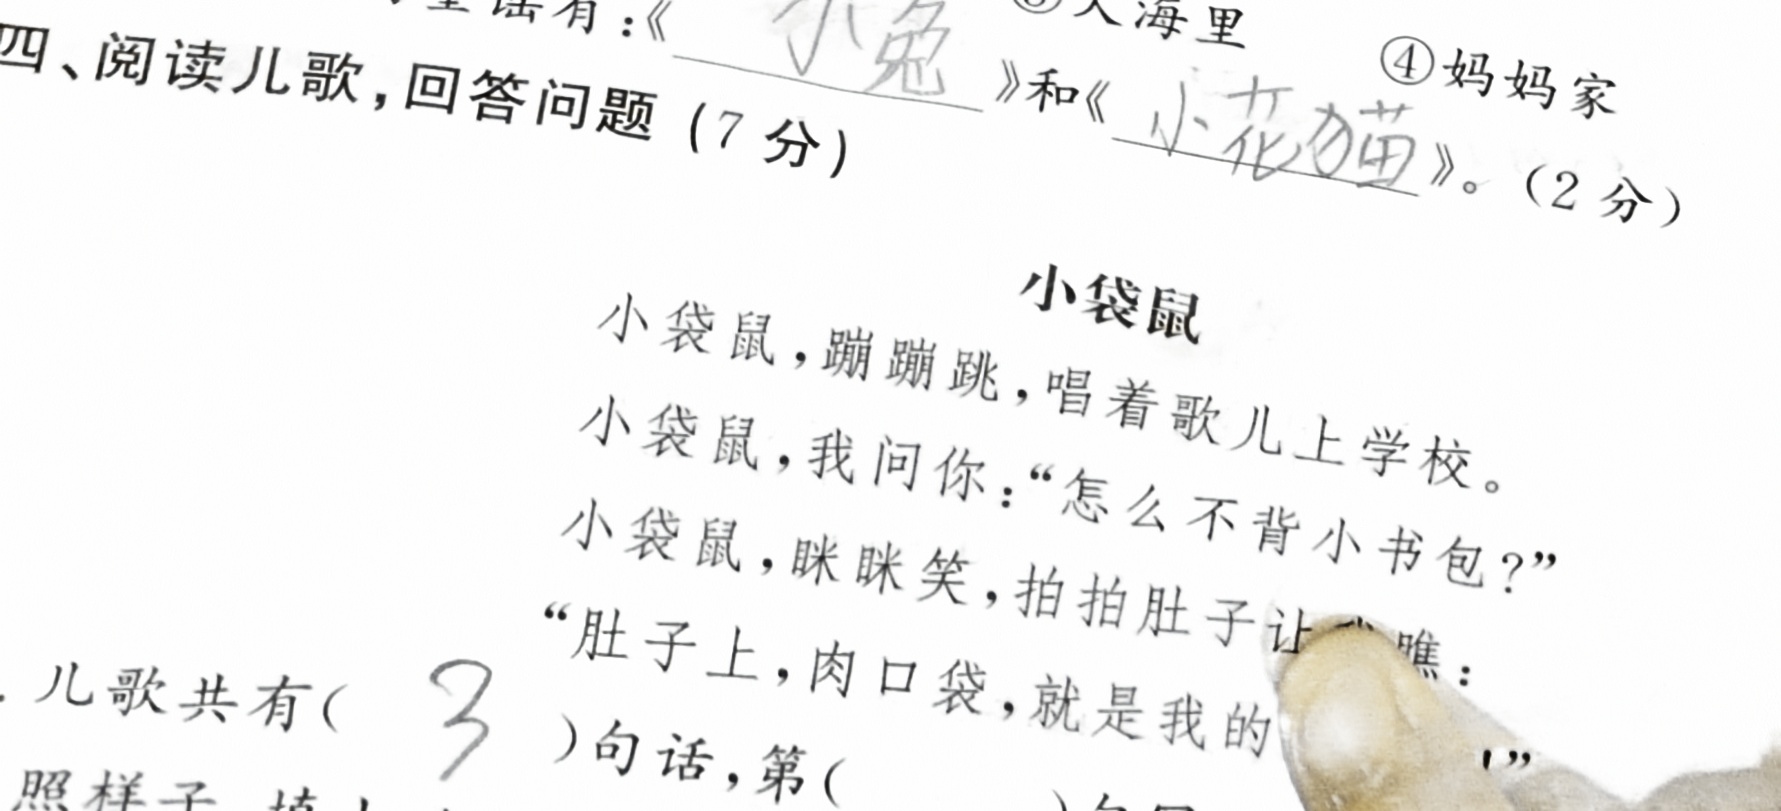 谣有：《 小兔 》和《 小花猫 》。（2 分）
③大海里 ④妈妈家
四、阅读儿歌，回答问题（7 分）
小袋鼠
小袋鼠，蹦蹦跳，唱着歌儿上学校。
小袋鼠，我问你：“怎么不背小书包？”
小袋鼠，眯眯笑，拍拍肚子让 瞧：
“肚子上，肉口袋，就是我的 ！”
儿歌共有( 3 )句话，第( )
照样子